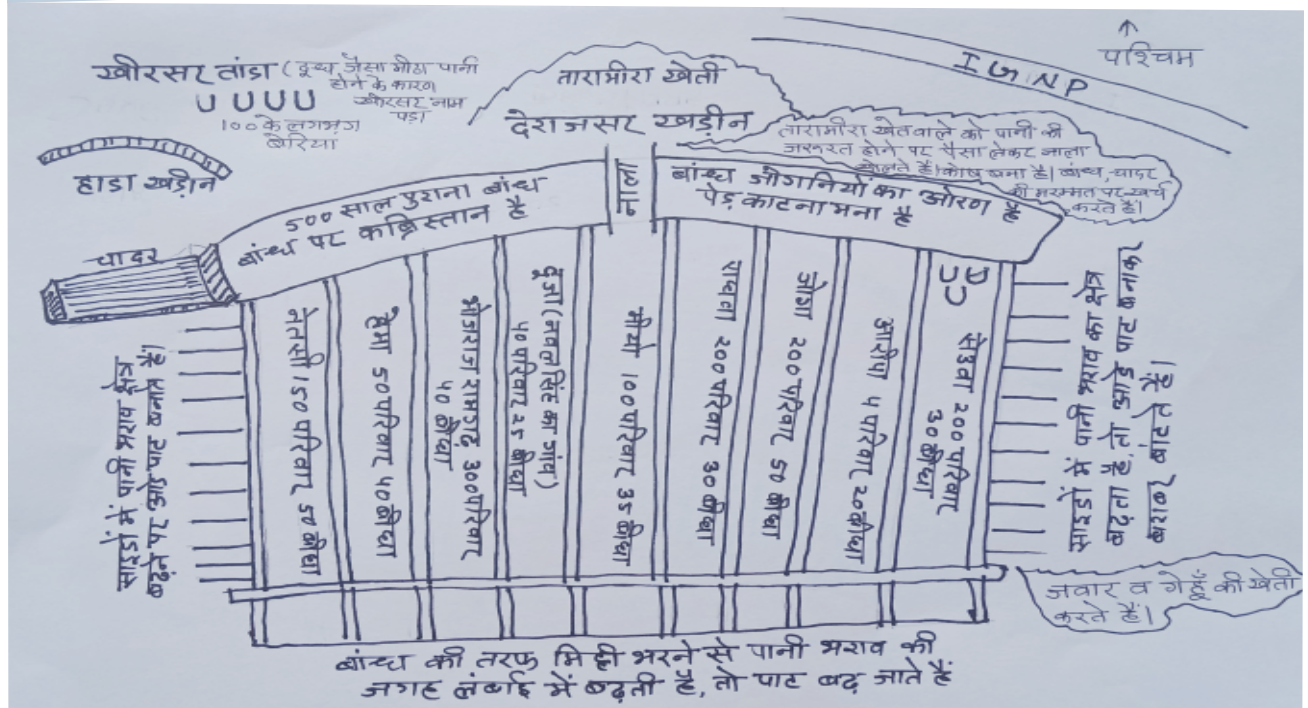 खीरसर तांडा (दूध जैसा मीठा पानी
होने के कारण
खीरसर नाम
पड़ा
UUUU
100 के लगभग
बेरिया
तारामीरा खेती
देराजसर खड़ीन
IGNP
पश्चिम
तारामीरा खेतवाले को पानी की
जरूरत होने पर पैसा लेकर नाला
खोलते हैं। कोष बना है। बांध, चादर
की मरम्मत पर खर्च
करते हैं।
हाडा खड़ीन
चादर
500 साल पुराना बांध
बांध पर कब्रिस्तान है
नाला
बांध जोगनियों का ओरण है
पेड़ काटना मना है
साइडों में पानी भराव क्षेत्र
बढ़ने पर ओड़े पाट बनाते हैं।
नेतसी 150 परिवार 50 बीघा
हेमा 50 परिवार 40 बीघा
भोजराज रामगढ़ 300 परिवार
40 बीघा
दूजा (नवल सिंह का गांव)
40 परिवार 25 बीघा
मीयो 100 परिवार 35 बीघा
राघवा 200 परिवार 30 बीघा
जोगा 200 परिवार 50 बीघा
4 परिवार 20 बीघा
सेउवा 200 परिवार
30 बीघा
साइडों में पानी भराव का क्षेत्र
बढ़ता है, तो आडे पाट बनाकर
बराबर बांटते हैं।
जवार व गेहूँ की खेती
करते हैं।
बांध की तरफ मिट्टी भरने से पानी भराव की
जगह लंबाई में बढ़ती है, तो पाट बढ़ जाते हैं